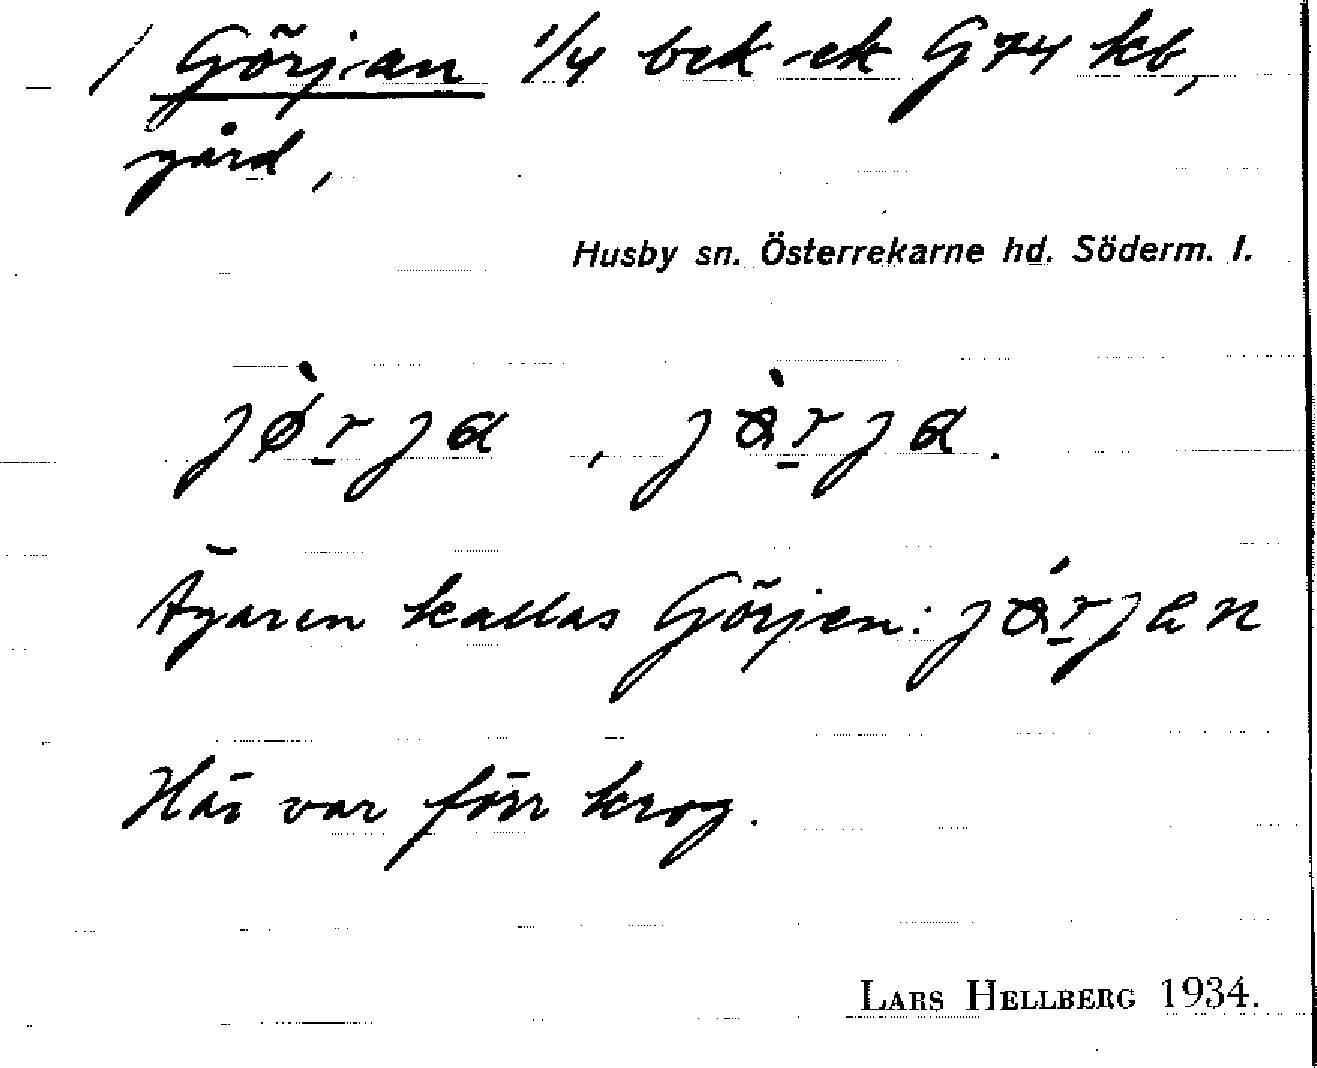 / Görjan 1/4 bek ek G74 kb,
gård,
Husby sn. Österrekarne hd. Söderm. l.
jø̀r̠ja, jàr̠ja.
Ägaren kallas Görjen: jár̠jen
Här var förr krog.
LARS HELLBERG 1934.